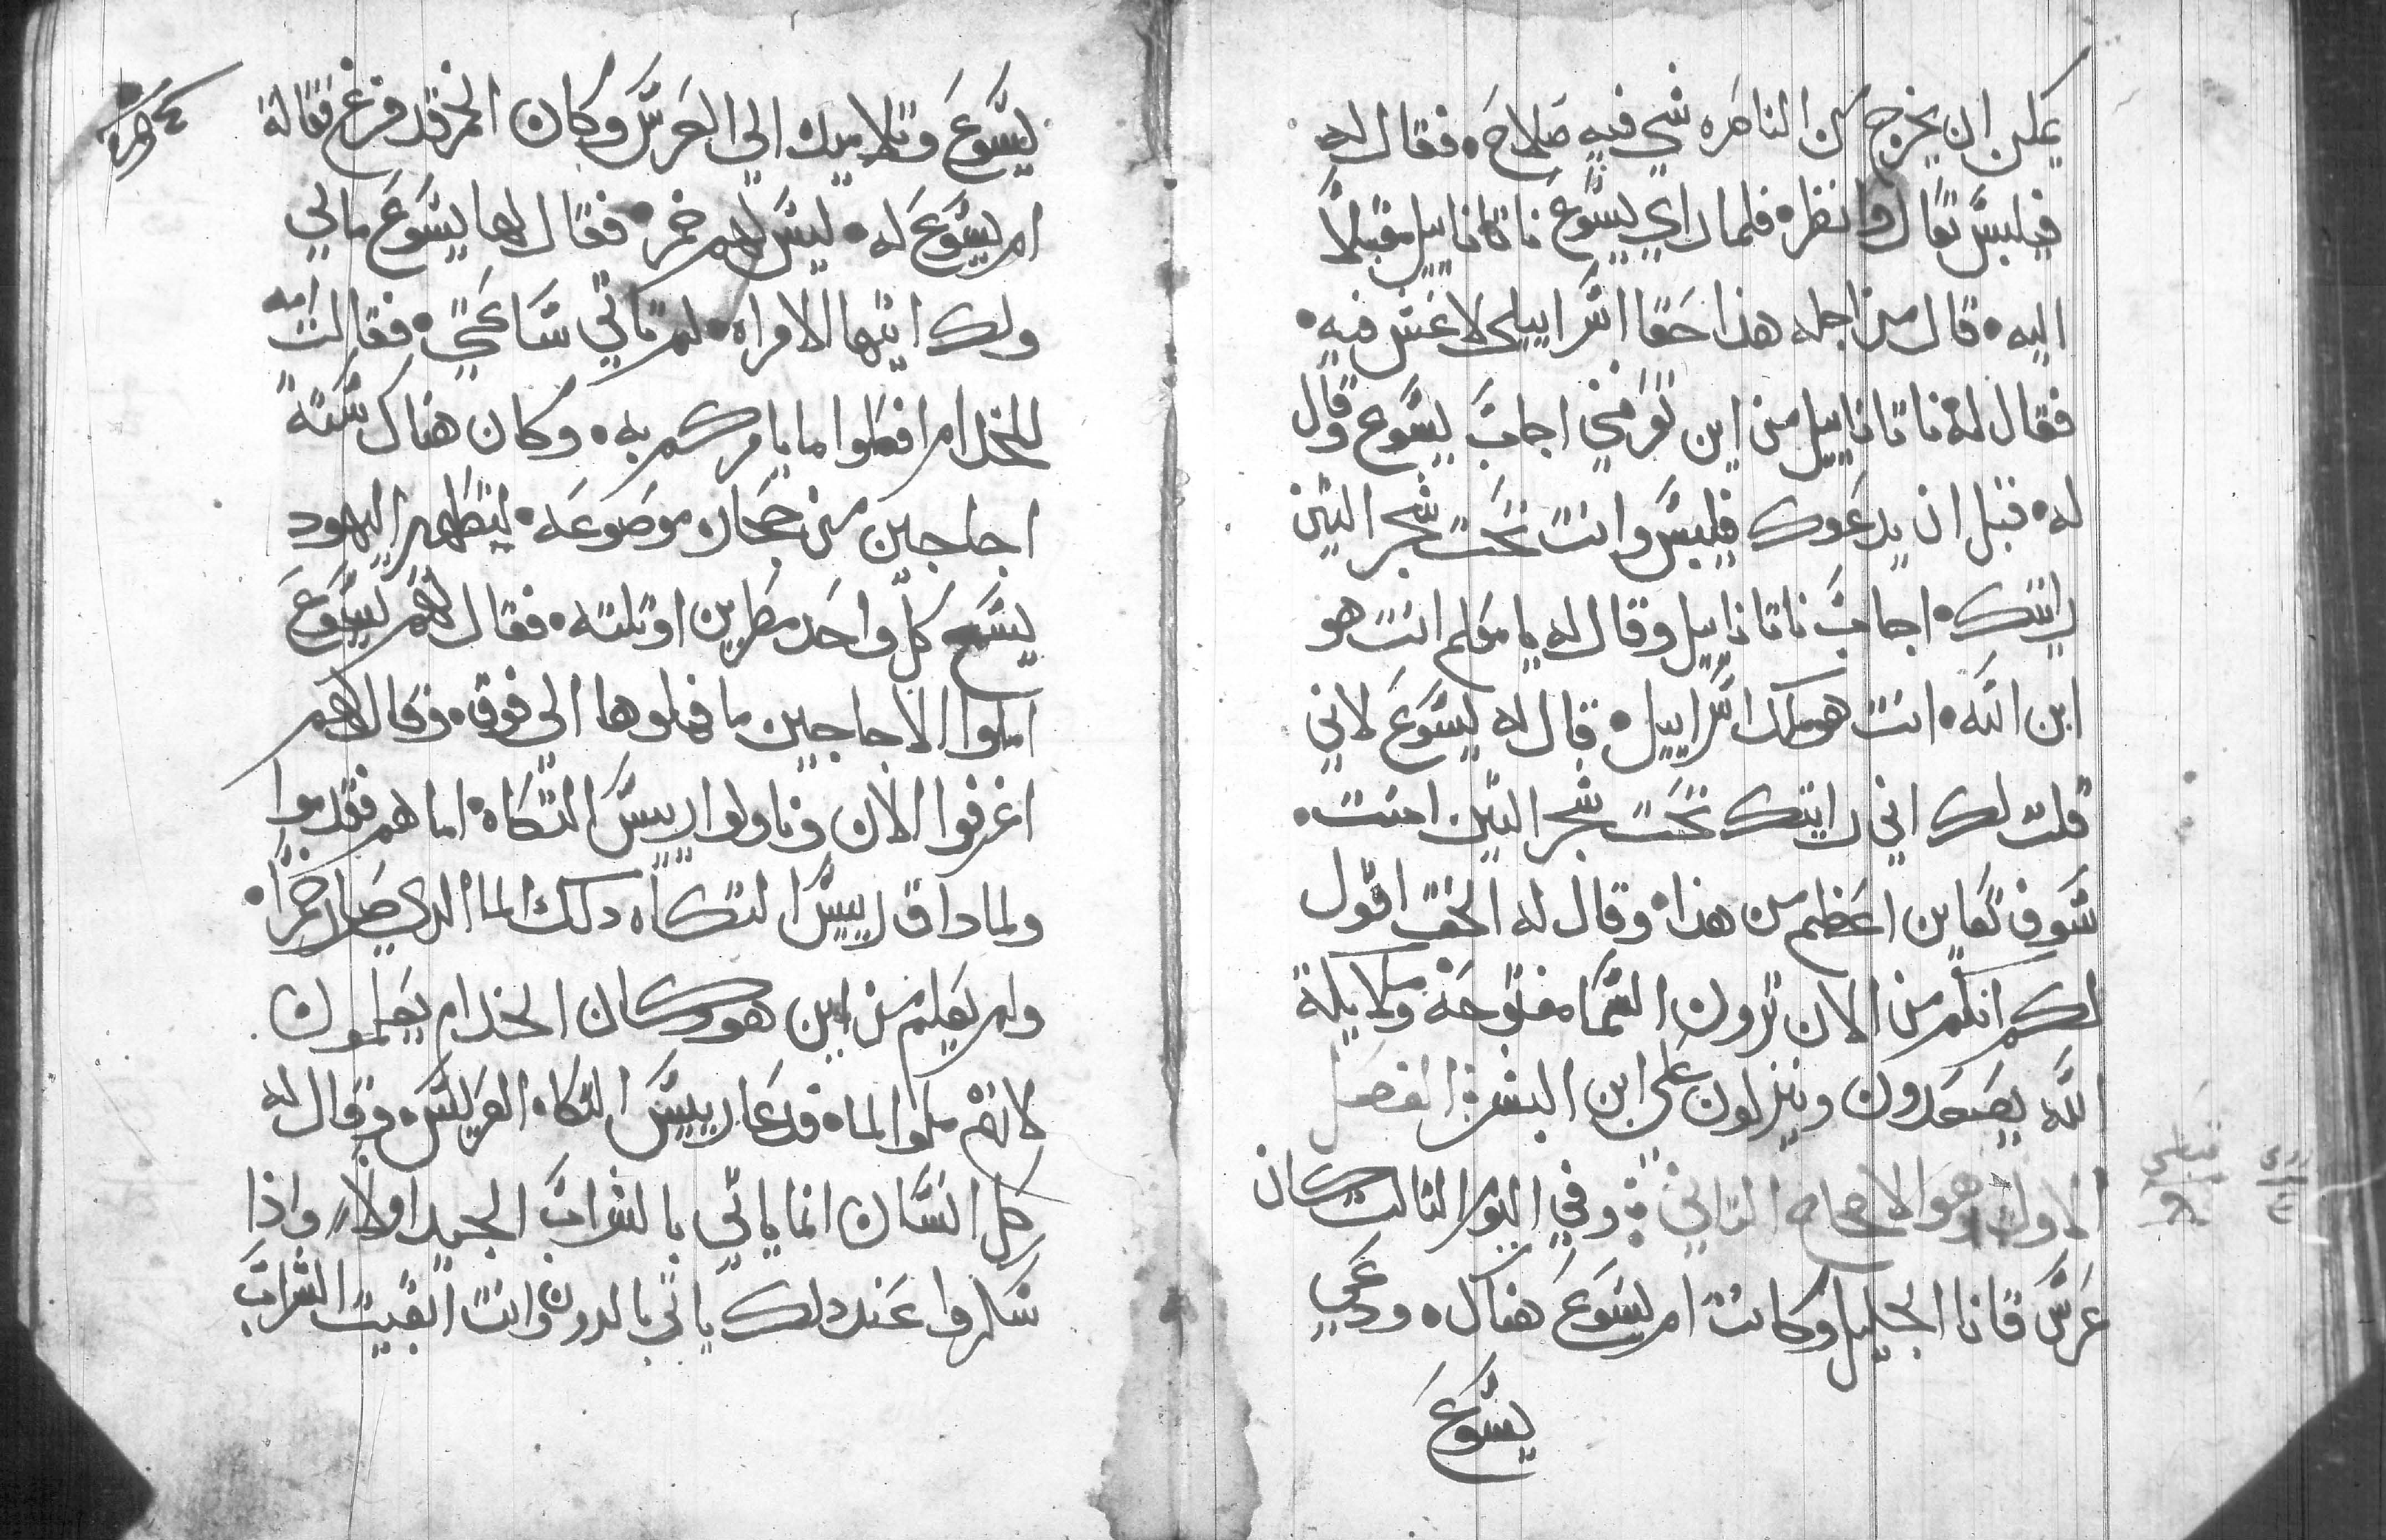 يمكن ان يخرج من الناصره شي فيه صلاح، فقال له
فيلبس تعال وانظر، فلما راي يسوع ناتانابيل مقبلاً
اليه، قال من اجله هذا حقا اسراييلي لا غش فيه،
فقال له ناتانابيل من اين تعرفني اجاب يسوع وقال
له، قبل ان يدعوك فيلبس وانت تحت شجر التين
رايتك، اجاب ناتانابيل وقال له يا معلم انت هو
ابن الله، انت هو ملك اسراييل، قال له يسوع لاني
قلت لك اني رايتك تحت شجر التين امنت،
سوف تعاين اعظم من هذا، وقال له الحق اقول
لكم انكم من الان ترون السما مفتوحة وملايكة
الله يصعدون وينزلون علي ابن البشر: الفصل
الاول وهو الاصحاح التاني: وفي اليوم التالت كان
عرس قانا الجليل وكانت ام يسوع هناك، ودعي
يسوع
يسوع وتلاميده الي العرس وكان الخمر قد فرغ فقالة
ام يسوع له، ليس لهم خمر، فقال لها يسوع مالي
ولك ايتها الامراه، لم تاتي ساعتي، فقالت امه
للخدام افعلوا ما يامركم به، وكان هناك ستة
اجاجين من حجاره موضوعه، لتطهير اليهود
يسع كل واحد مطرين او تلته، فقال لهم يسوع
املوا الاجاجين ما فملوها الي فوق، وقال لهم
اغرفوا الان وناولوا رييس التكاه، اما هم فقدموا
ولما داق رييس التكاه دلك الما الدي صار خمراً،
ولم يعلم من اين هو وكان الخدام يعلمون
لانهم ملوا الما، فدعا رييس التكاه العريس، وقال له
كل انسان انما ياتي بالشراب الجيد اولاً، واذا
سكروا عند دلك ياتي بالدون وانت ابقيت الشراب